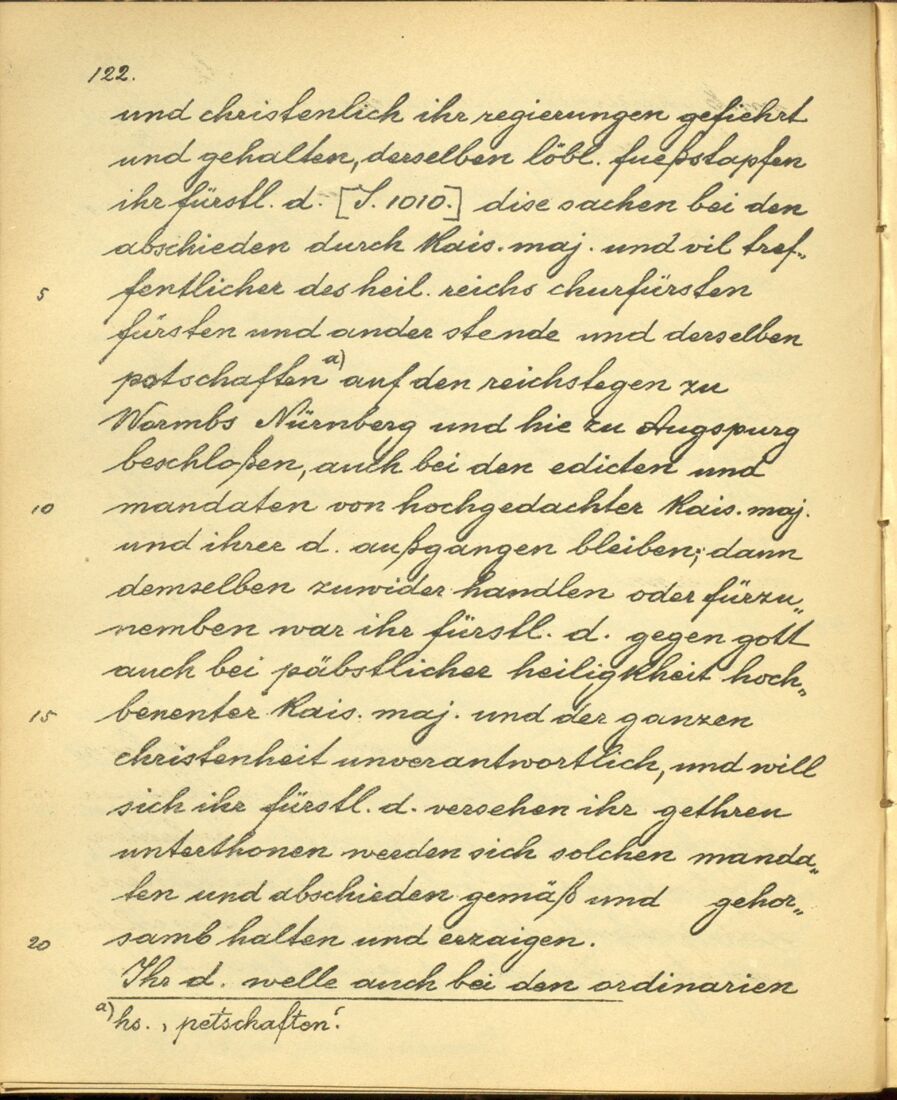 122.
und christenlich ihr regierungen gefiehrt
und gehalten, derselben löbl. fueßstapfen
ihr fürstl. d. [S. 1010.] dise sachen bei den
abschieden durch Kais. maj. und vil tref„
5 fentlicher des heil. reichs churfürsten
fürsten und ander stende und derselben
potschaften a) auf den reichstegen zu
Wormbs Nürnberg und hie zu Augspurg
beschloßen, auch bei den edicten und
10 mandaten von hochgedachter Kais. maj.
und ihrer d. außgangen bleiben; dann
demselben zuwider handlen oder fürzu„
nemben war ihr fürstl. d. gegen gott
auch bei päbstlicher heiligkheit hoch„
15 benenter Kais. maj. und der ganzen
christenheit unverantwortlich, und will
sich ihr fürstl. d. versehen ihr gethren
unterthonen werden sich solchen manda„
ten und abschieden gemäß und gehor„
20 samb halten und erzaigen.
Ihr d. welle auch bei den ordinarien
a) hs. ‚petschaften‘.